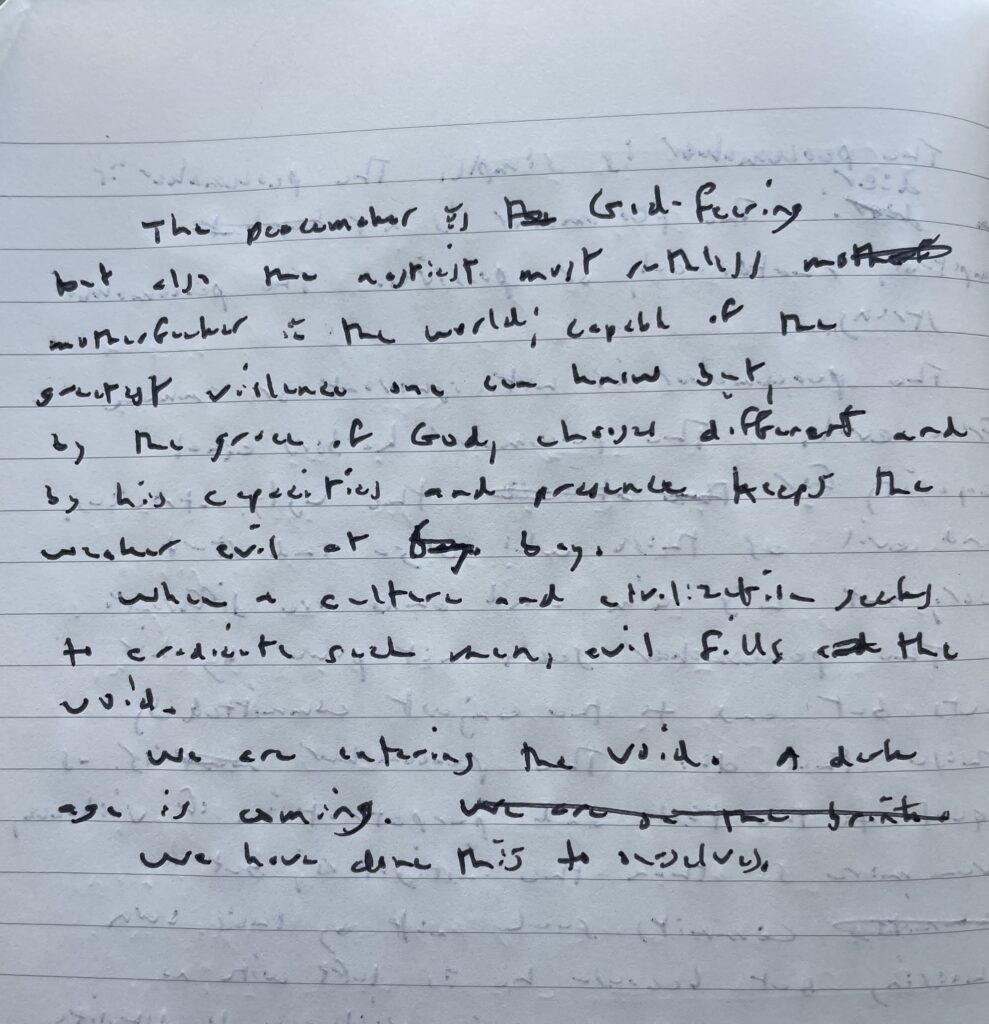 The peacemaker is the God-fearing
but also the nastiest most ruthless
motherfucker in the world; capable of the
greatest violence one can know but,
by the grace of God, chooses different and
by his capacities and presence keeps the
weaker evil at bay. bay.
When a culture and civilization seeks
to eradicate such men, evil fills the
void.
We are entering the void. A dark
age is coming. We are on the brink
We have done this to ourselves.